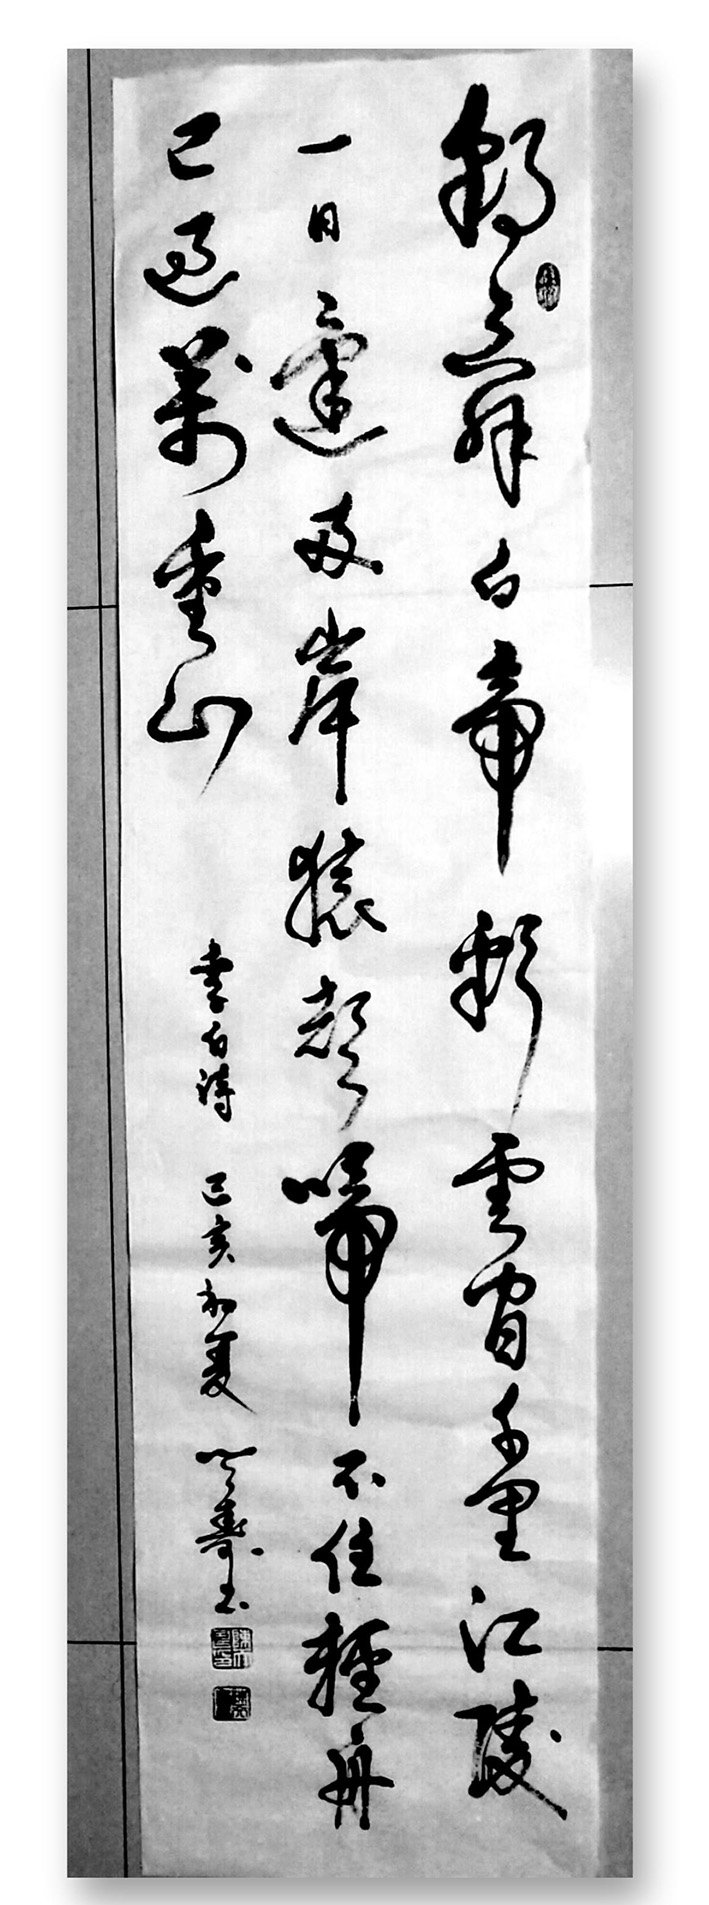 朝辭白帝彩雲間千里江陵
一日還兩岸猿聲啼不住輕舟
已過萬重山
李白詩 己亥初夏 壽玉